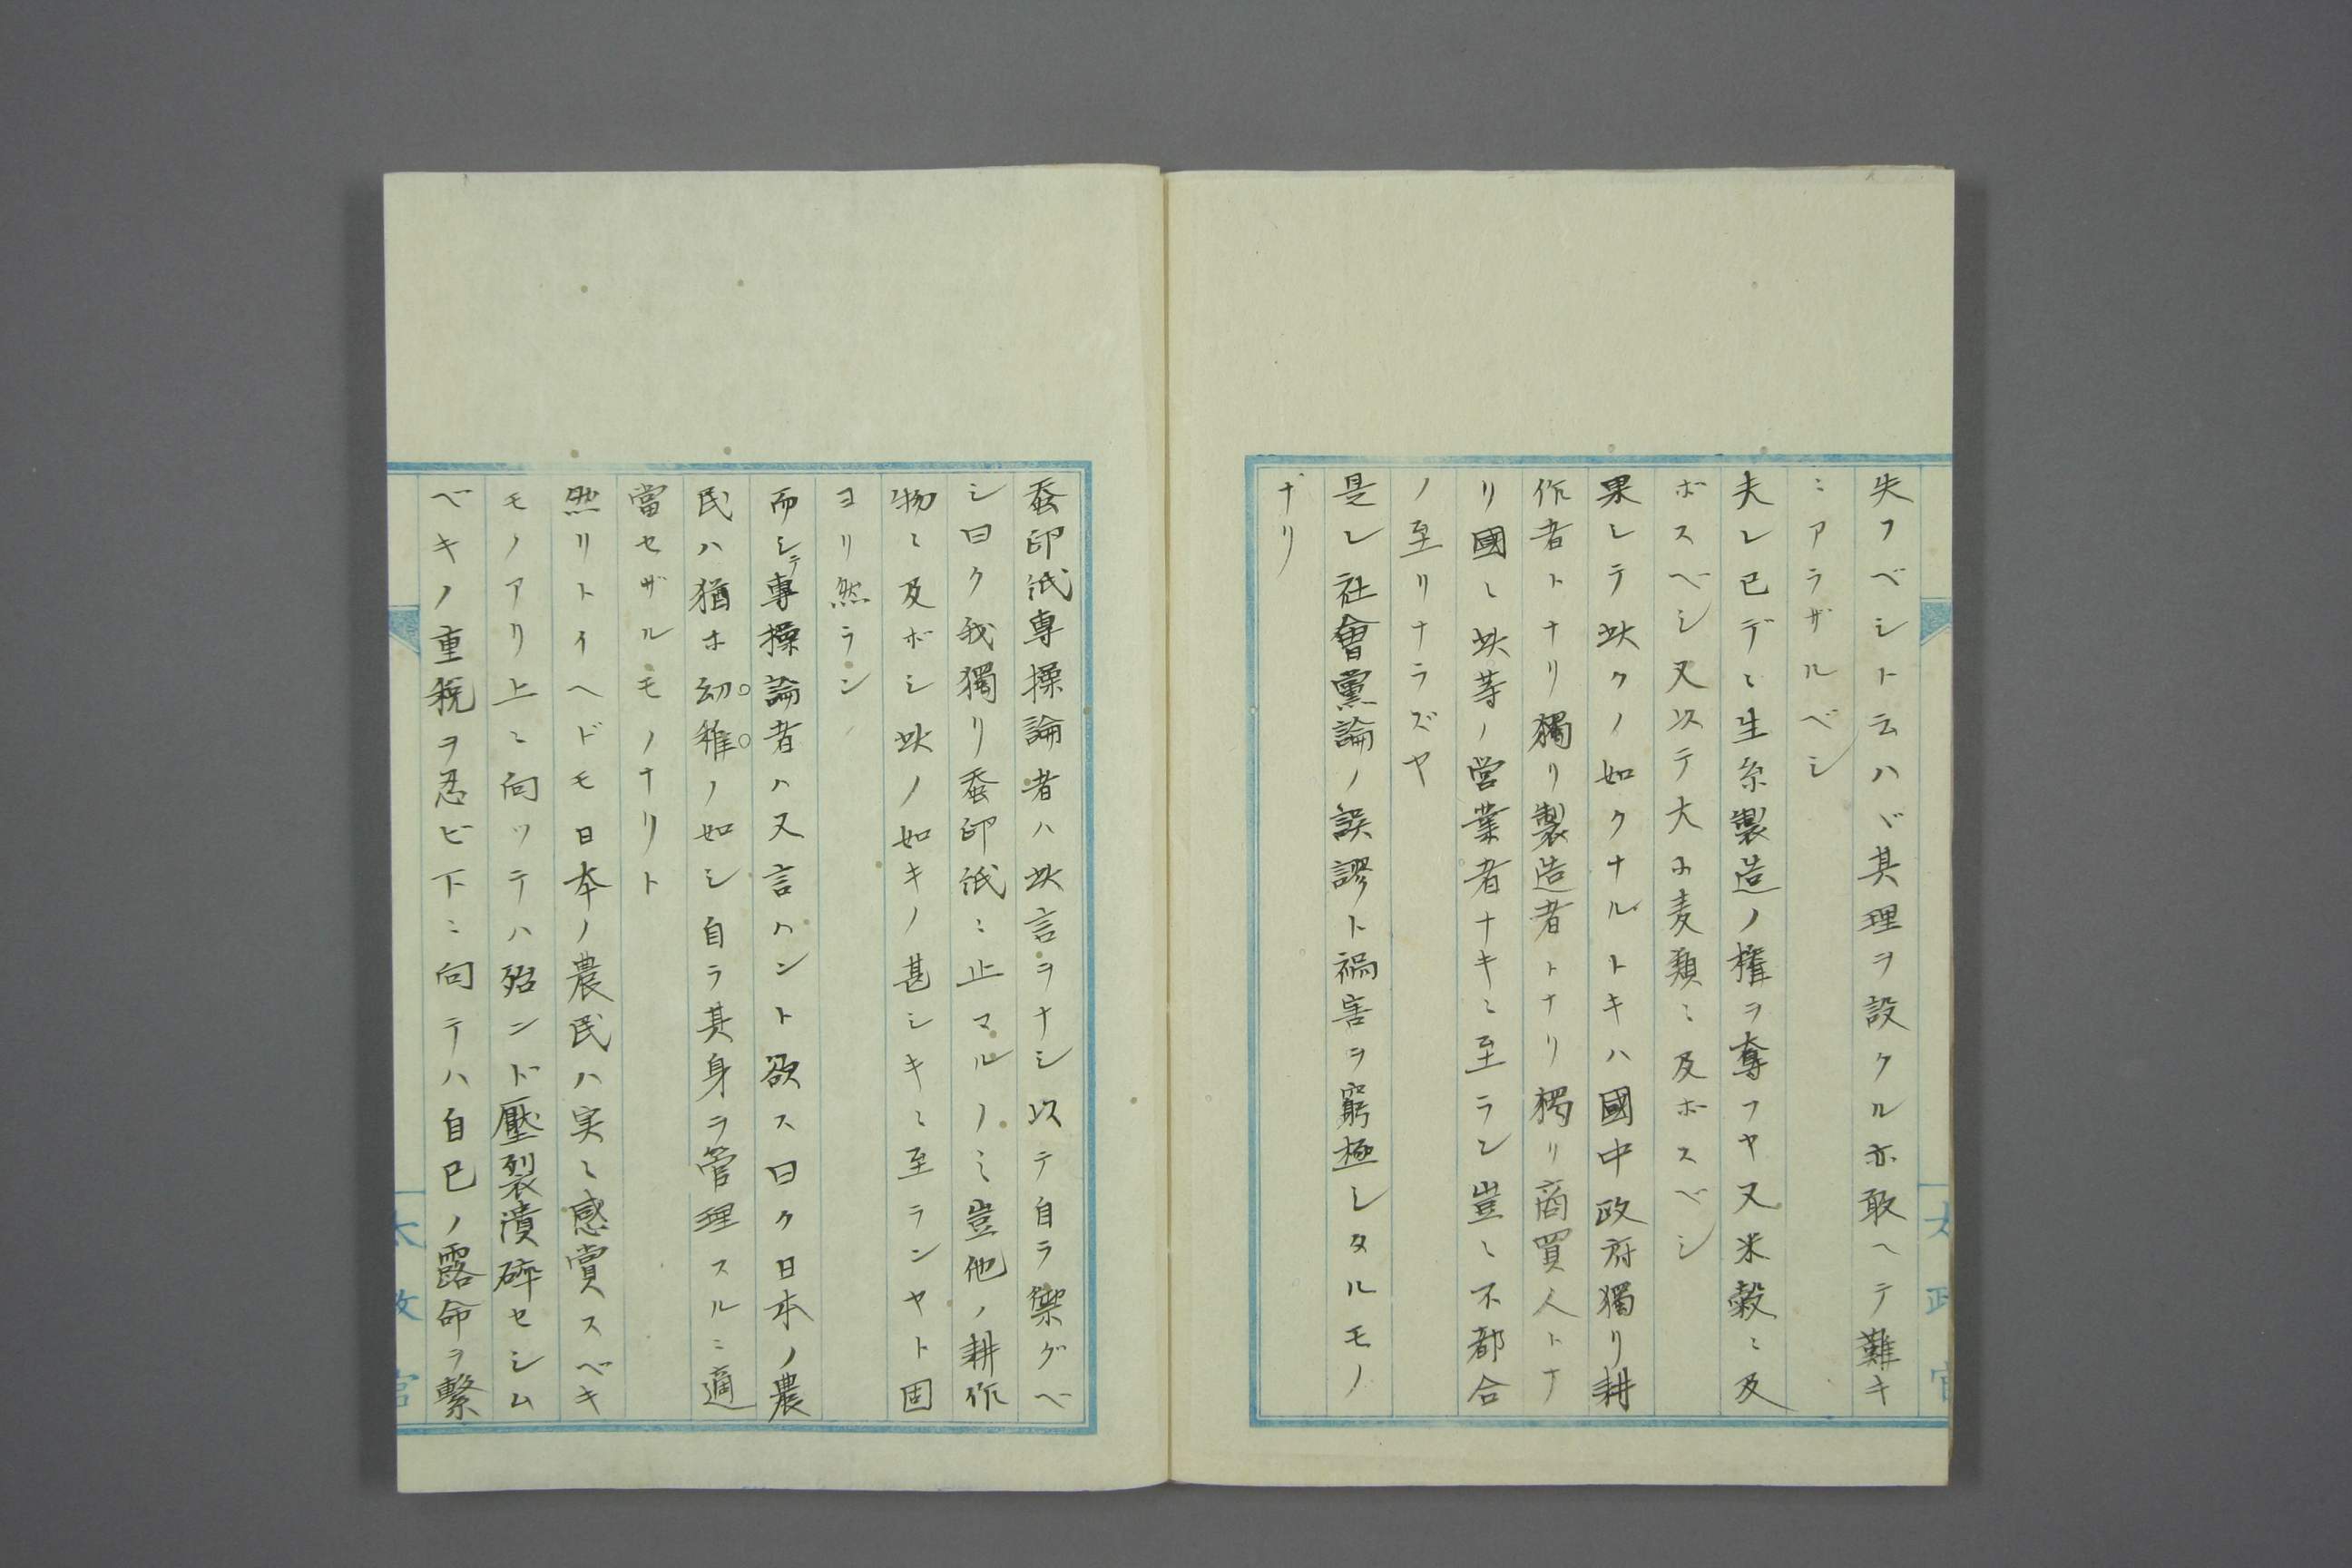 失フベシト云ハヾ其理ヲ設クル亦敢ヘテ難キ
ニアラザルベシ
夫レ已デニ生糸製造ノ権ヲ奪フヤ又米穀ニ及
ボスベシ又以テ大小麦類ニ及ホスベシ
果シテ此クノ如クナルトキハ國中政府獨リ耕
作者トナリ獨リ製造者トナリ獨リ商買人トナ
リ國ニ此等ノ営業者ナキニ至ラン豈ニ不都合
ノ至リナラズヤ
是レ社會黨論ノ誤謬ト禍害ヲ窮極シタルモノ
ナリ
蚕印紙専操論者ハ此言ヲナシ以テ自ラ禦グベ
シ曰ク我獨リ蚕印紙ニ止マルノミ豈他ノ耕作
物ニ及ボシ此ノ如キノ甚シキニ至ランヤト固
ヨリ然ラン
而シテ專操論者ハ又言ハント欲ス曰ク日本ノ農
民ハ猶ホ幼稚ノ如シ自ラ其身ヲ管理スルニ適
當セザルモノナリト
然リトイヘドモ日本ノ農民ハ実ニ感賞スベキ
モノアリ上ニ向ッテハ殆ンド壓裂潰碎セシム
ベキノ重税ヲ忍ビ下ニ向テハ自己ノ露命ヲ繋
太政官